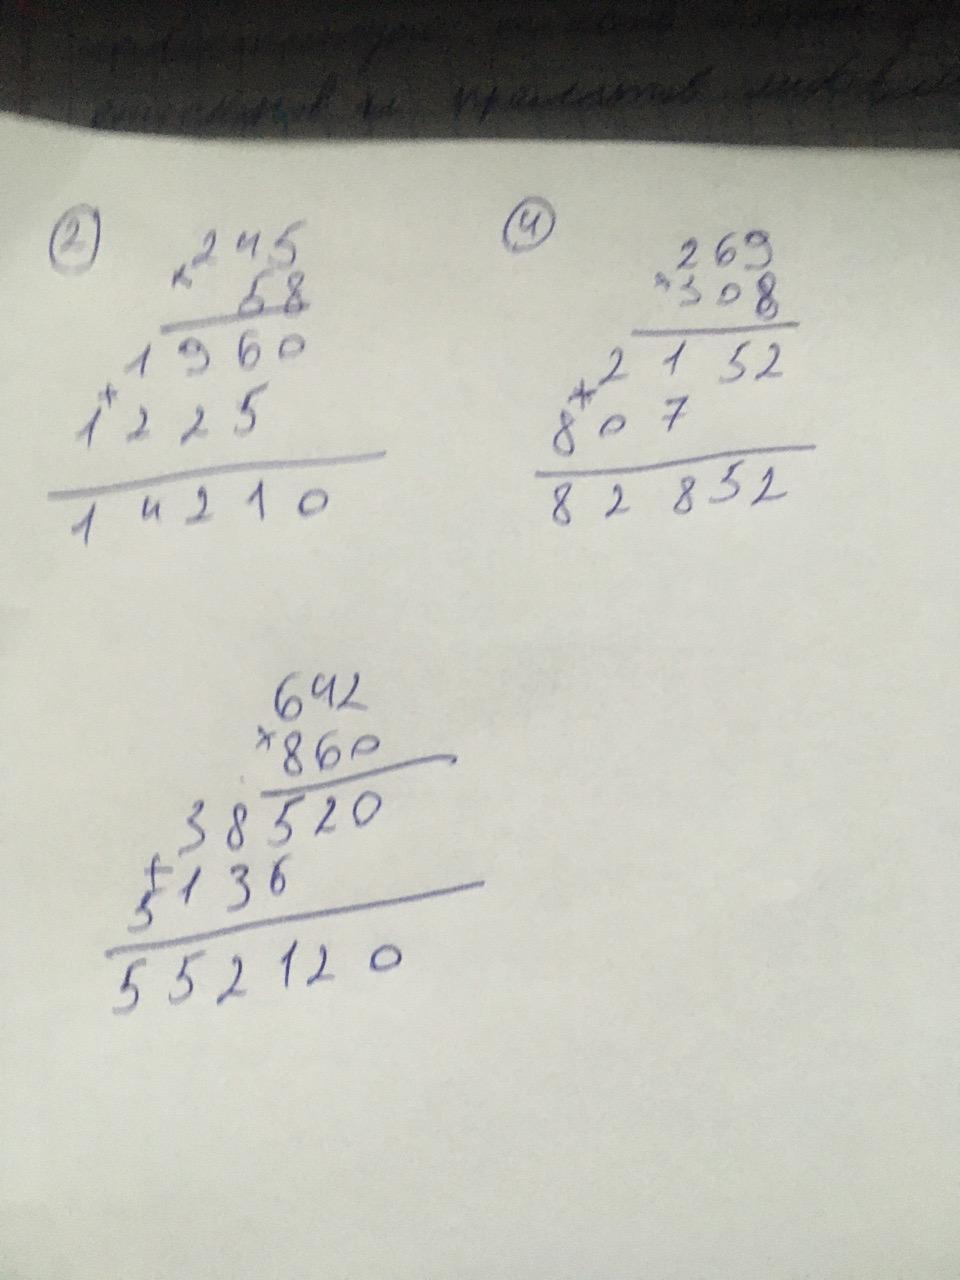 ②
245
× 58
1960
+
1225
14210
④
269
× 308
2152
+
807
82852
642
× 860
38520
+
5136
552120